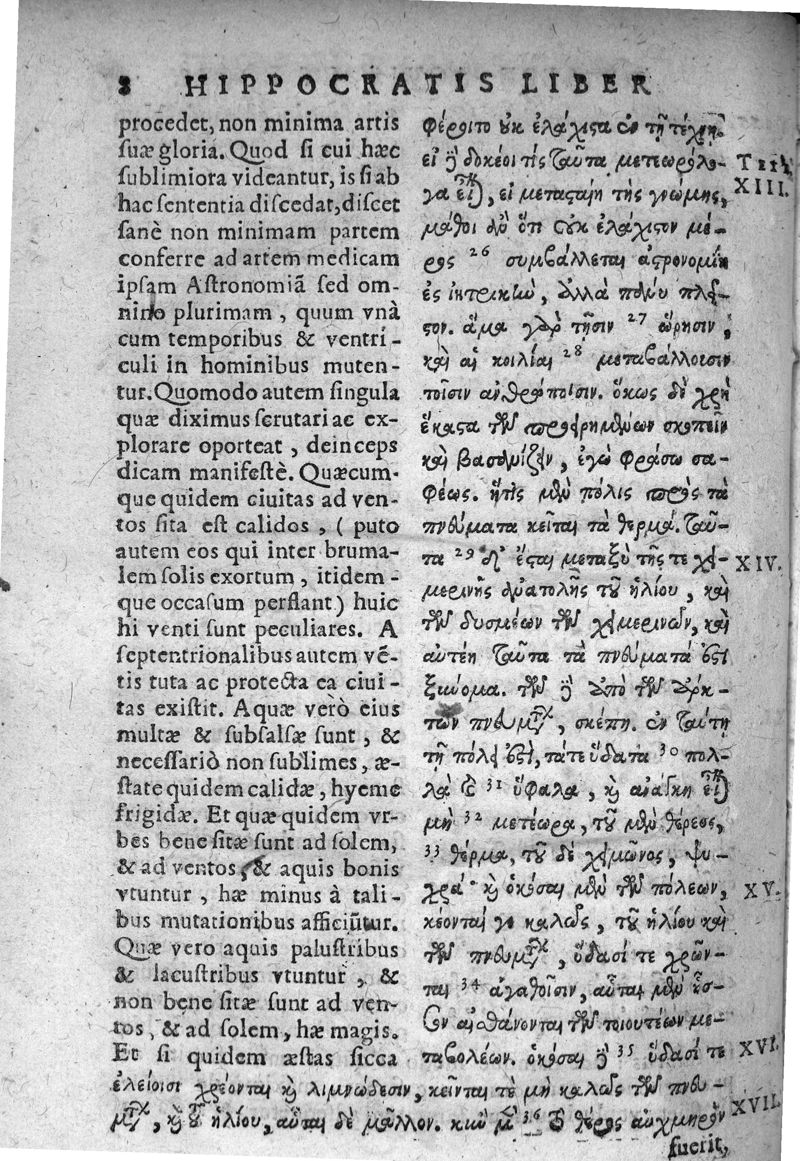 8 HIPPOCRATIS LIBER
procedet, non minima artis
suæ gloria. Quod si cui hæc
sublimiora videantur, is si ab
hac sententia discedat, discet
sanè non minimam partem
conferre ad artem medicam
ipsam Astronomiã sed om-
nino plurimam, quum vnà
cum temporibus & ventri-
culi in hominibus muten-
tur. Quomodo autem singula
quæ diximus scrutari ac ex-
plorare oporteat, deinceps
dicam manifestè. Quæcum-
que quidem ciuitas ad ven-
tos sita est calidos, (puto
autem eos qui inter bruma-
lem solis exortum, itidem-
que occasum perflant) huic
hi venti sunt peculiares. A
septentrionalibus autem vẽ-
tis tuta ac protecta ea ciui-
tas existit. Aquæ verò eius
multæ & subsalsæ sunt, &
necessariò non sublimes, æ-
state quidem calidæ, hyeme
frigidæ. Et quæ quidem vr-
bes bene sitæ sunt ad solem,
& ad ventos, & aquis bonis
vtuntur, hæ minus à tali-
bus mutationibus afficiũtur.
Quæ vero aquis palustribus
& lacustribus vtuntur, &
non bene sitæ sunt ad ven-
tos, & ad solem, hæ magis.
Et si quidem æstas sicca
φέροιτο οὐκ ἐλάχιστα ἐν τῇ τέχνῃ.
εἰ δὲ δοκέοι τὶς ταῦτα μετεωρόλο-
γα εἶναι, εἰ μετασταίη τῆς γνώμης,
μάθοι ἂν ὅτι οὐκ ἐλάχιστον μέ-
ρος 26 συμβάλλεται ἀστρονομίη
ἐς ἰητρικὴν, ἀλλὰ πολὺ πλεῖ-
στον. ἅμα γὰρ τῇσιν 27 ὥρησιν,
καὶ αἱ κοιλίαι 28 μεταβάλλουσιν
τοῖσιν ἀνθρώποισιν. ὅκως δὲ χρὴ
ἕκαστα τῶν προειρημένων σκοπεῖν
καὶ βασανίζειν, ἐγὼ φράσω σα-
φέως. ἥτις μὲν πόλις πρὸς τὰ
πνεύματα κεῖται τὰ θερμά. ταῦ-
τα 29 δ' ἔσται μεταξὺ τῆς τε χει-
μερινῆς ἀνατολῆς τοῦ ἡλίου, καὶ
τῶν δυσμέων τῶν χειμερινῶν, καὶ
αὐτέη ταῦτα τὰ πνεύματά ἐστι
ξύννομα. τῶν δὲ ἀπὸ τῶν ἄρκ-
των πνευμάτων, σκέπη. ἐν ταύτῃ
τῇ πόλει ἐστὶ, τάτε ὕδατα 30 πολ-
λὰ καὶ 31 ὕφαλα, καὶ ἀνάγκη εἶναι
μὴ 32 μετέωρα, τοῦ μὲν θέρεος,
33 θέρμα, τοῦ δὲ χειμῶνος, ψυ-
χρά. καὶ ὁκόσαι μὲν τῶν πόλεων,
κέονται γε καλῶς, τοῦ ἡλίου καὶ
τῶν πνευμάτων, ὕδασί τε χρῶν-
ται 34 ἀγαθοῖσιν, αὗται μὲν ἧσ-
σον αἰσθάνονται τῶν τοιουτέων με-
ταβολέων. ὁκόσαι δὲ 35 ὕδασί τε
ἑλείοισι χρέονται καὶ λιμνώδεσιν, κεῖνται τὲ μὴ καλῶς τῶν πνευ-
μάτων, καὶ τοῦ ἡλίου, αὗται δὲ μᾶλλον. κἢν μὲν 36 τὸ θέρος αὐχμηρὸν
XIII.
XIV.
XV.
XVI.
XVII.
fuerit,